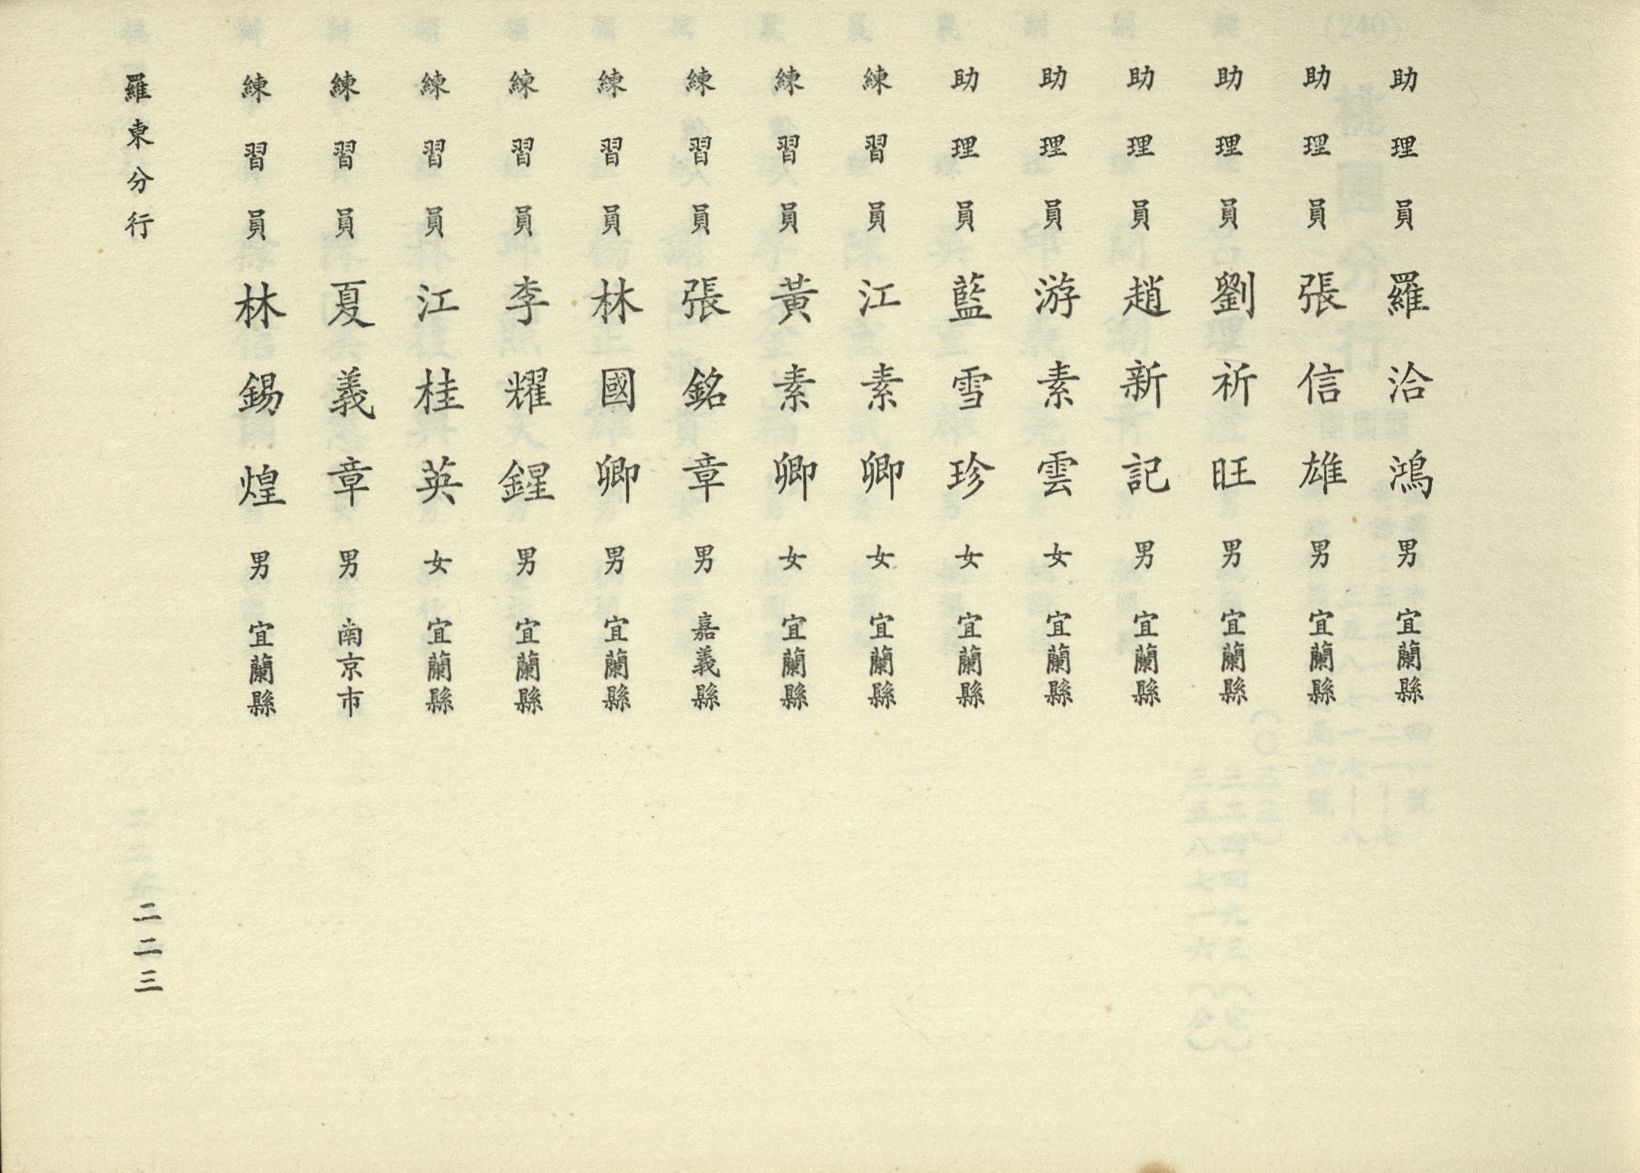 助理員 羅洽鴻 男 宜蘭縣
助理員 張信雄 男 宜蘭縣
助理員 劉祈旺 男 宜蘭縣
助理員 趙新記 男 宜蘭縣
助理員 游素雲 女 宜蘭縣
助理員 藍雪珍 女 宜蘭縣
練習員 江素卿 女 宜蘭縣
練習員 黃素卿 女 宜蘭縣
練習員 張銘章 男 嘉義縣
練習員 林國卿 男 宜蘭縣
練習員 李耀鍟 男 宜蘭縣
練習員 江桂英 女 宜蘭縣
練習員 夏義章 男 南京市
練習員 林錫煌 男 宜蘭縣
羅東分行 二二三